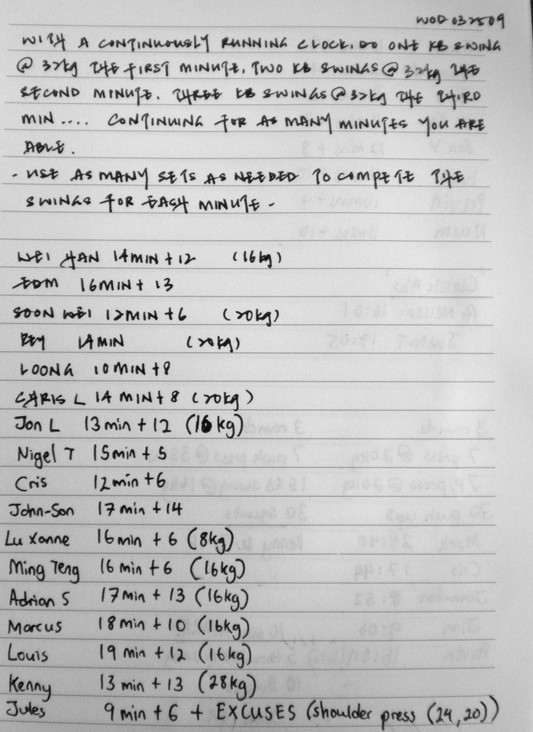 WOD 032509
WITH A CONTINUOUSLY RUNNING CLOCK, DO ONE KB SWING
@ 32kg THE FIRST MINUTE, TWO KB SWINGS @ 32kg THE
SECOND MINUTE. THREE KB SWINGS @ 32kg THE THIRD
MIN .... CONTINUING FOR AS MANY MINUTES YOU ARE
ABLE.
- USE AS MANY SETS AS NEEDED TO COMPETE THE
SWINGS FOR EACH MINUTE -
WEI HAN 14MIN + 12 (16kg)
EDM 16MIN + 13
SOON WEI 12MIN + 6 (20kg)
14MIN (20kg)
LOONG 10MIN + 8
CHRIS L 14 MIN + 8 (20kg)
Jon L 13min + 12 (16kg)
Nigel T 15min + 5
Cris 12min + 6
John-Son 17min + 14
Lu Xanne 16min + 6 (8kg)
Ming Teng 16min + 6 (16kg)
Adrian S 17min + 13 (16kg)
Marcus 18min + 10 (16kg)
Louis 19min + 12 (16kg)
Kenny 13min + 13 (28kg)
Jules 9min + 6 + EXCUSES (shoulder press (24, 20))